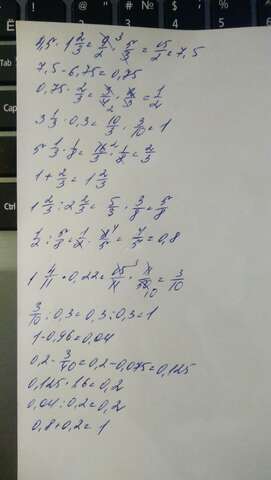 4,5 · 1 2/3 = 9/2 · 5/3 = 15/2 = 7,5
7,5 - 6,75 = 0,75
0,75 · 2/3 = 3/4 · 2/3 = 1/2
3 1/3 · 0,3 = 10/3 · 3/10 = 1
5 1/3 · 1/8 = 16/3 · 1/8 = 2/3
1 + 2/3 = 1 2/3
1 2/3 : 2 2/3 = 5/3 · 3/8 = 5/8
1/2 : 5/8 = 1/2 · 8/5 = 4/5 = 0,8
1 4/11 · 0,22 = 15/11 · 11/50 = 3/10
3/10 : 0,3 = 0,3 : 0,3 = 1
1 - 0,96 = 0,04
0,2 - 3/40 = 0,2 - 0,075 = 0,125
0,125 · 1,6 = 0,2
0,04 : 0,2 = 0,2
0,8 + 0,2 = 1
Tab
Ctrl